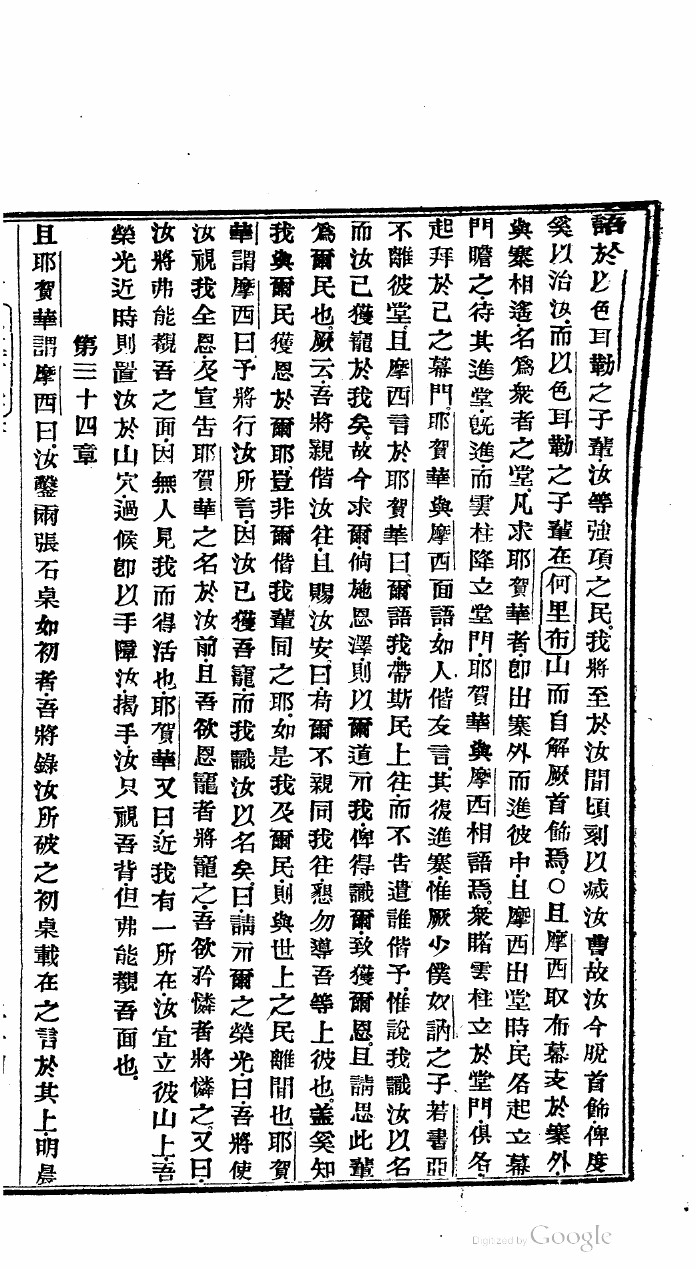 語於以色耳勒之子輩汝等強項之民。我將至於汝間頃刻以滅汝曹。故汝今脫首飾俾度
奚以治汝。而以色耳勒之子輩在何里布山而自解厥首飾焉。○且摩西取布幕支於寨外。
與寨相遙。名爲衆者之堂。凡求耶賀華者卽出寨外而進彼中。且摩西出堂時民各起立幕
門瞻之待其進堂。旣進而雲柱降立堂門。耶賀華與摩西相語焉。衆睹雲柱立於堂門俱各
起拜於己之幕門。耶賀華與摩西面語如人偕友言。其復進寨惟厥少僕奴訥之子若書亞
不離彼堂。且摩西言於耶賀華曰爾語我帶斯民上往而不告遣誰偕予。惟說我識汝以名
而汝已獲寵於我矣。故今求爾倘施恩澤則以爾道示我俾得識爾致獲爾恩。且請思此輩
爲爾民也。厥云吾將親偕汝往且賜汝安。曰苟爾不親同我往懇勿導吾等上彼也。蓋奚知
我與爾民獲恩於爾耶。豈非爾偕我輩同之耶。如是我及爾民則與世上之民離間也。耶賀
華謂摩西曰予將行汝所言。因汝已獲吾寵而我識汝以名矣。曰請示爾之榮光。曰吾將使
汝視我全恩及宣告耶賀華之名於汝前且吾欲恩寵者將寵之吾欲矜憐者將憐之。又曰
汝將弗能覩吾之面。因無人見我而得活也。耶賀華又曰近我有一所在汝宜立彼山上。吾
榮光近時則置汝於山穴過候卽以手障汝。揭手汝只視吾背但弗能覩吾面也。
第三十四章
且耶賀華謂摩西曰汝鑿兩張石桌如初者吾將錄汝所破之初桌載在之言於其上。明晨
Digitized by Google